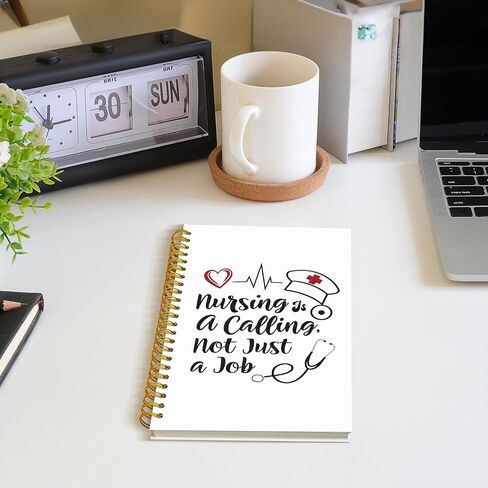 DATE
DAY
30
SUN
Nursing Is
A Calling,
Not Just
a Job